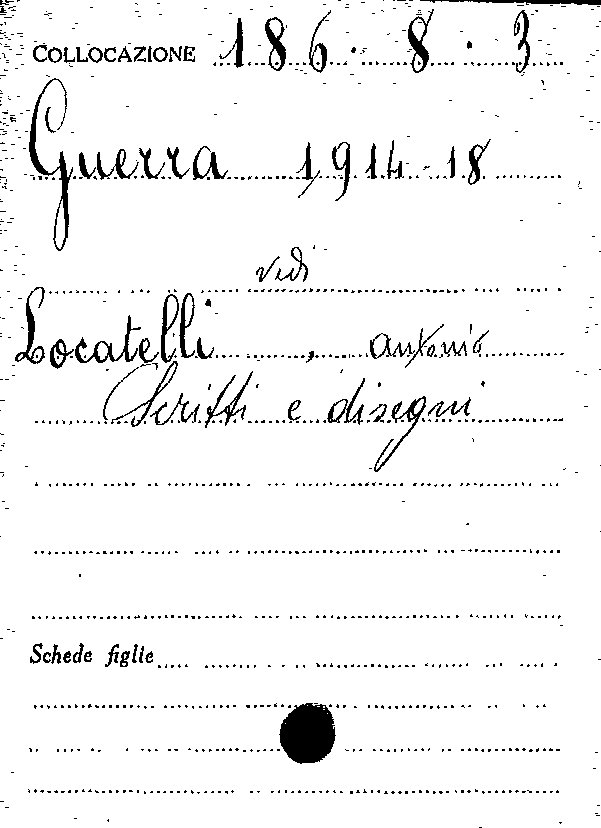 COLLOCAZIONE 186.8.3
Guerra 1914-18
vedi
Locatelli, Antonio
Scritti e disegni
Schede figlie